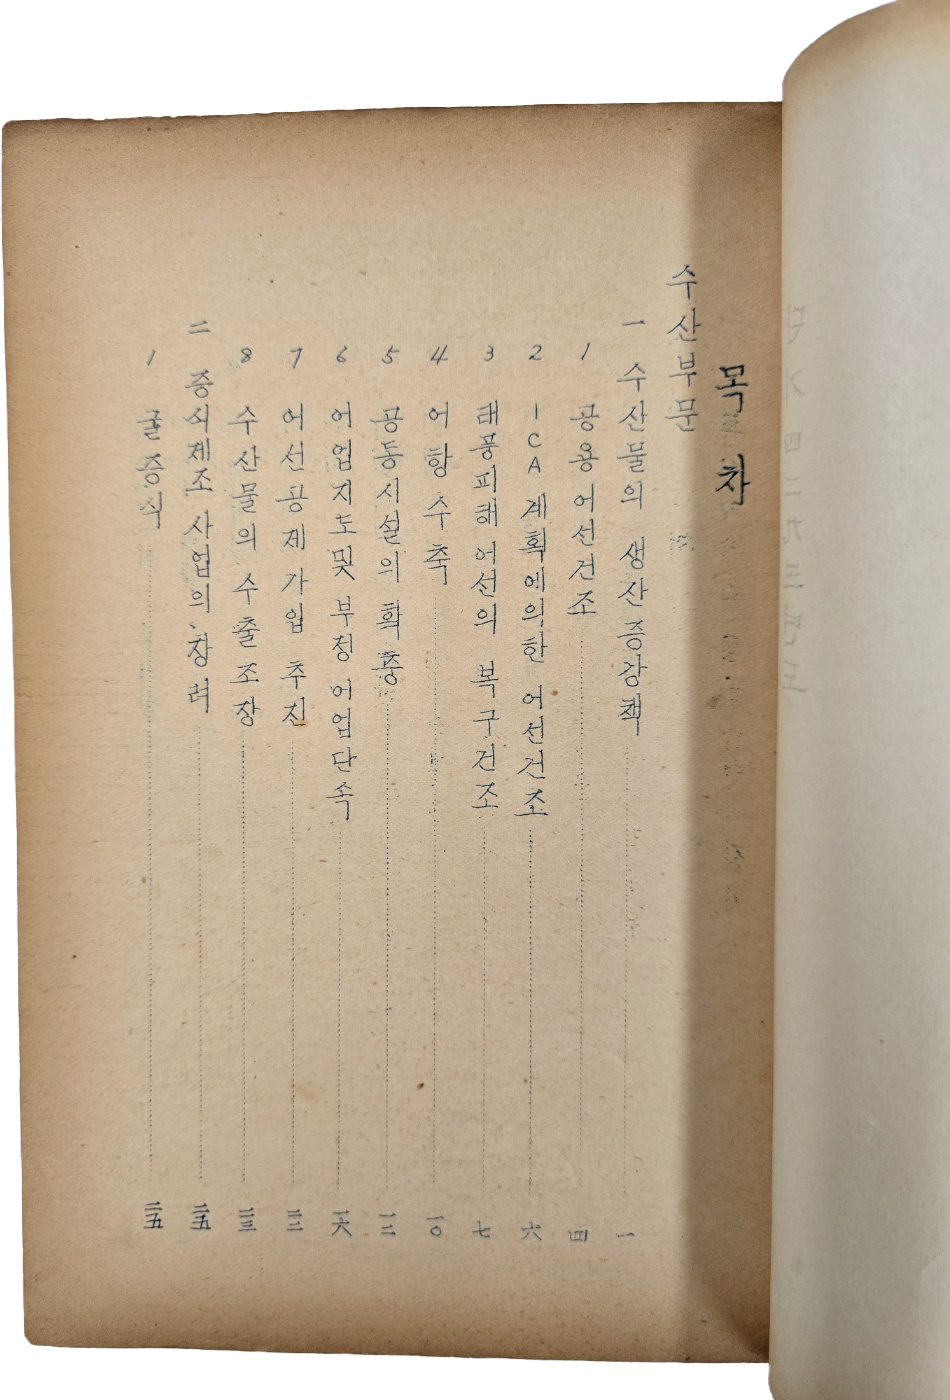 목차
수산부문
一 수산물의 생산증강책 一
1 공용어선건조 四
2 ICA 계획에의한 어선건조 六
3 태풍피해 어선의 복구건조 七
4 어항수축 一〇
5 공동시설의 확충 一二
6 어업지도및 부정어업단속 一六
7 어선공제가입 추진 二二
8 수산물의 수출조장 二三
二 증식제조사업의 장려 二五
1 굴증식 二五